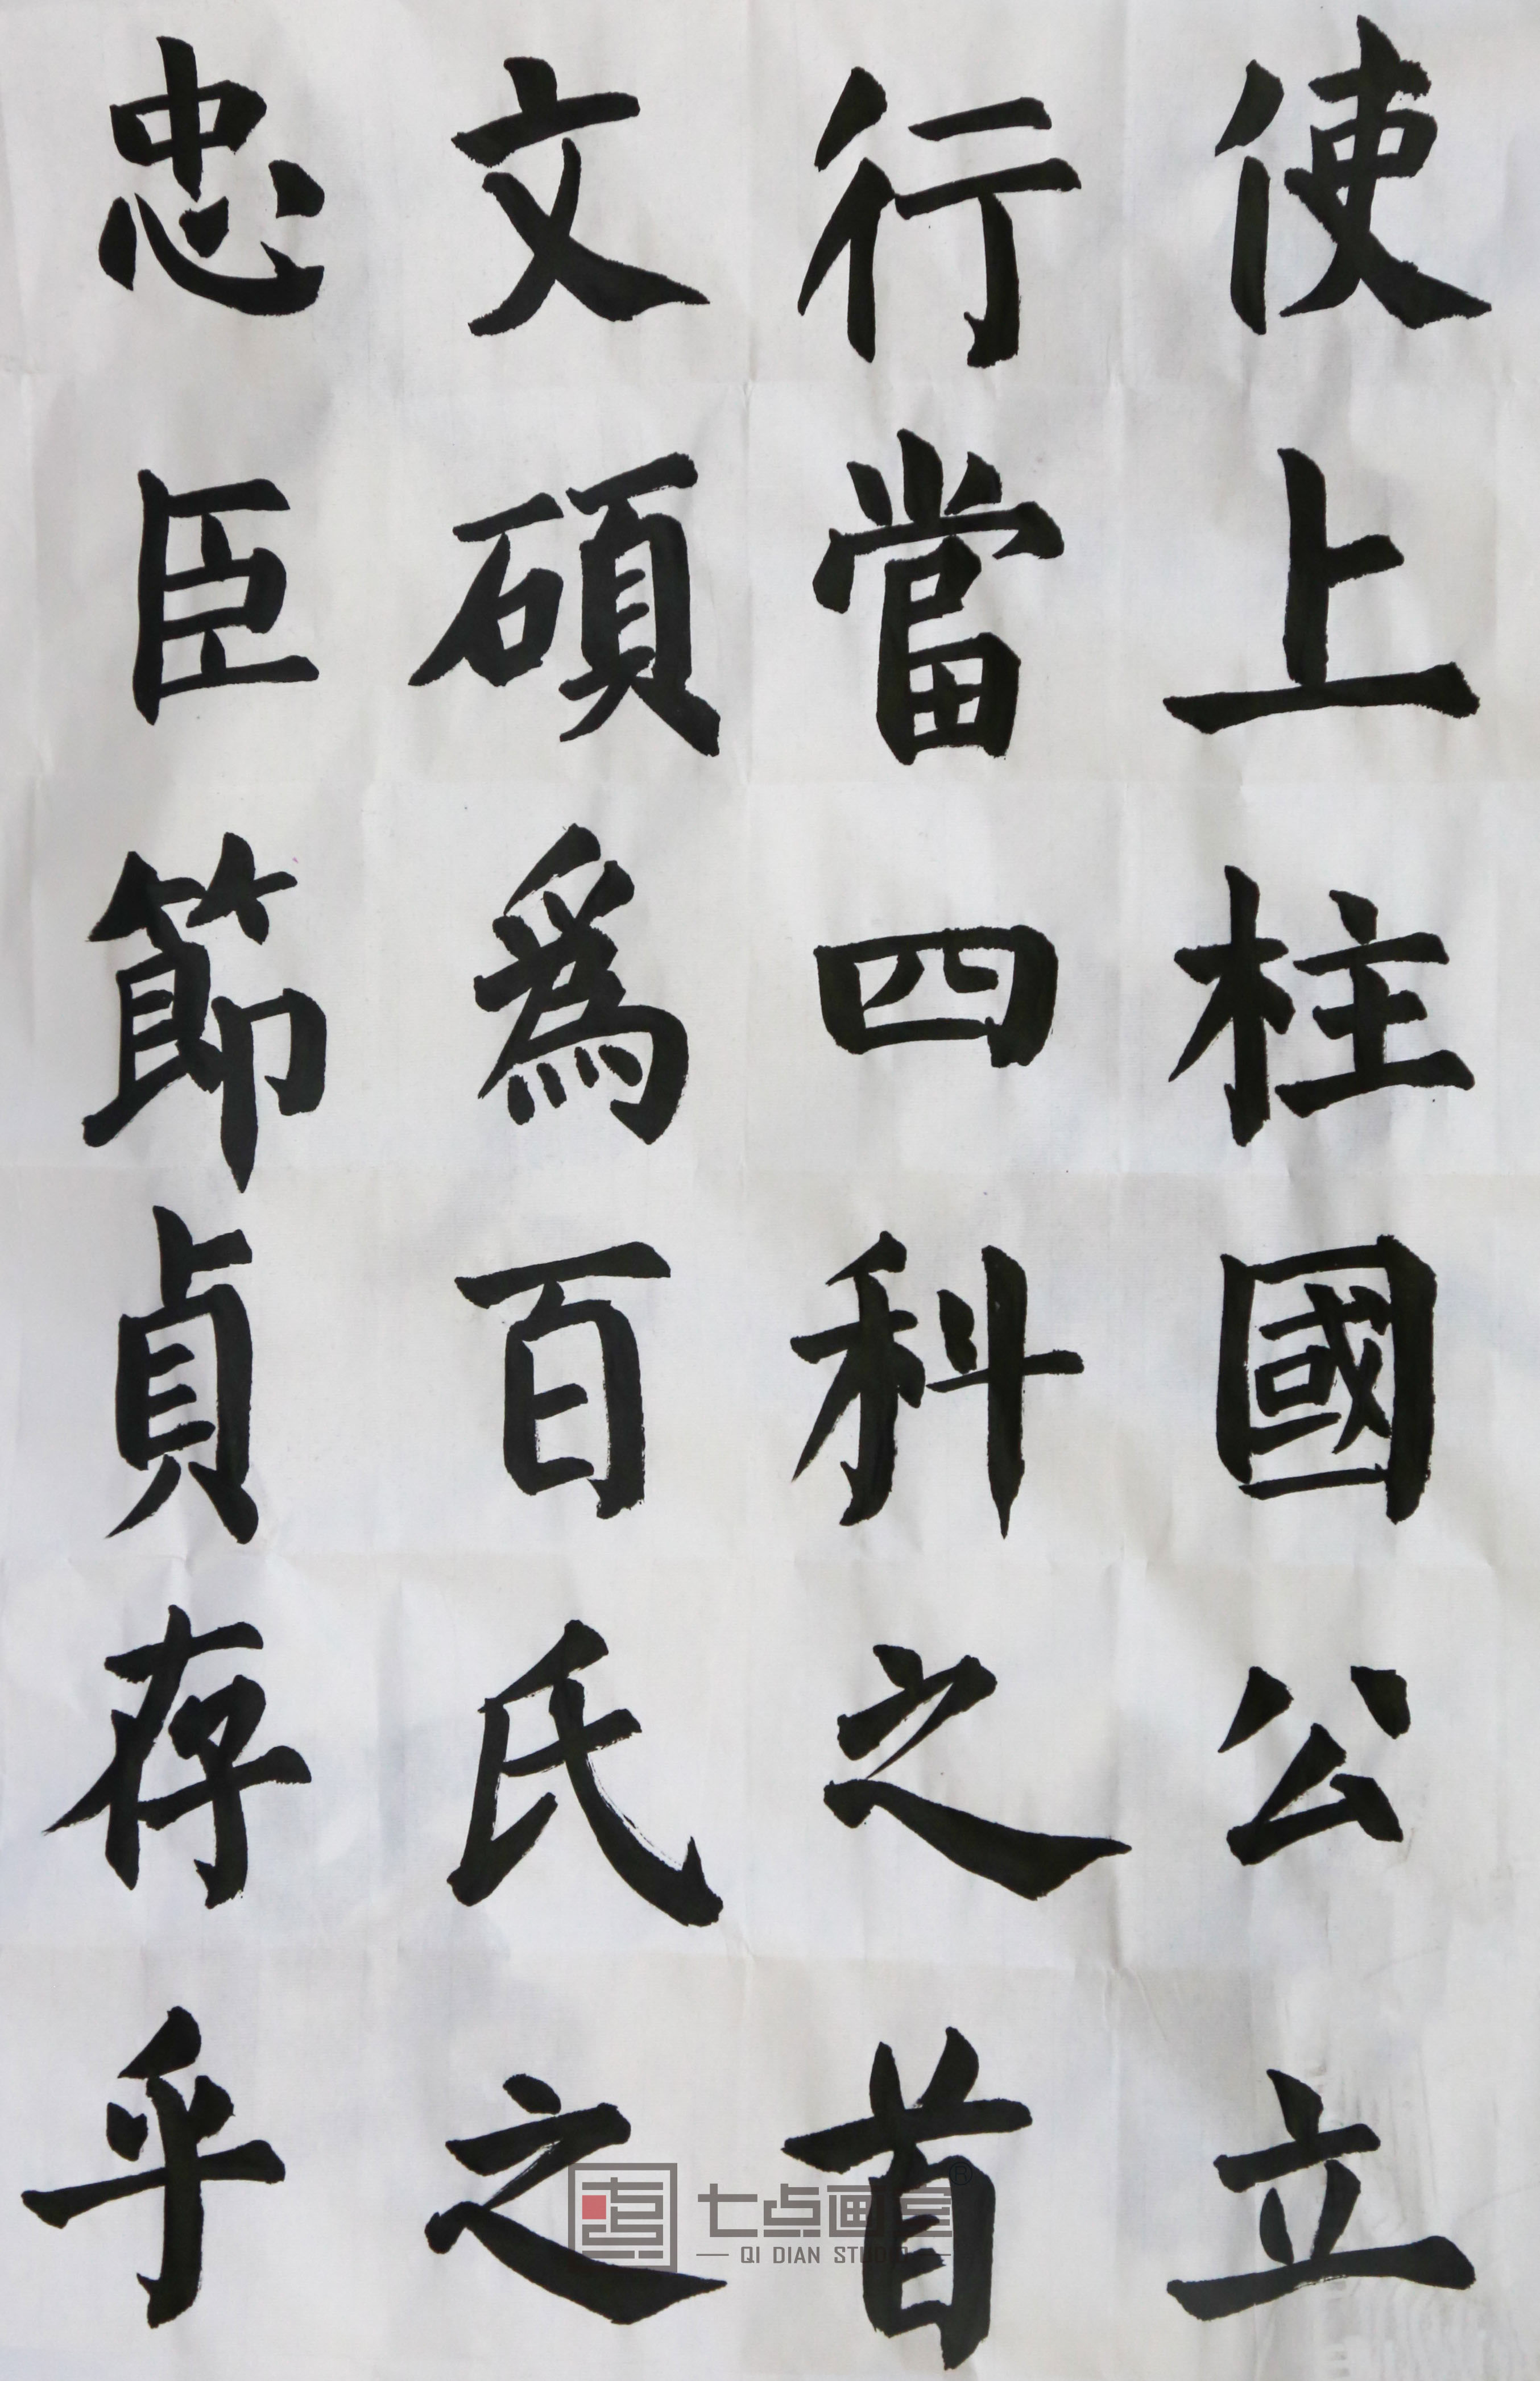 使上柱國公立
行當四科之首
文碩爲百氏之
忠臣節貞存乎
七点画室
QI DIAN STUDIO
®